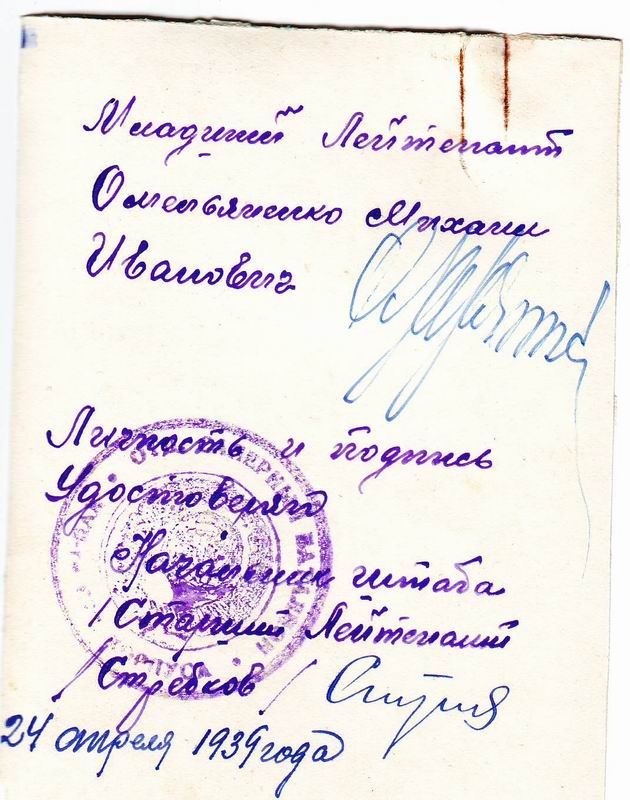 Младший Лейтенант
Омельяненко Михаил
Иванович
Личность и подпись
Удостоверяю
Начальник штаба
/Старший Лейтенант
/Стребков/
24 апреля 1939 года